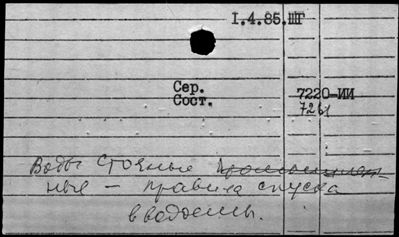 I.4.85.ШГ
Сер. 7220-ИИ
Сост. 7261
Воды сточные промышлен-
ные — правила спуска
в водоемы.